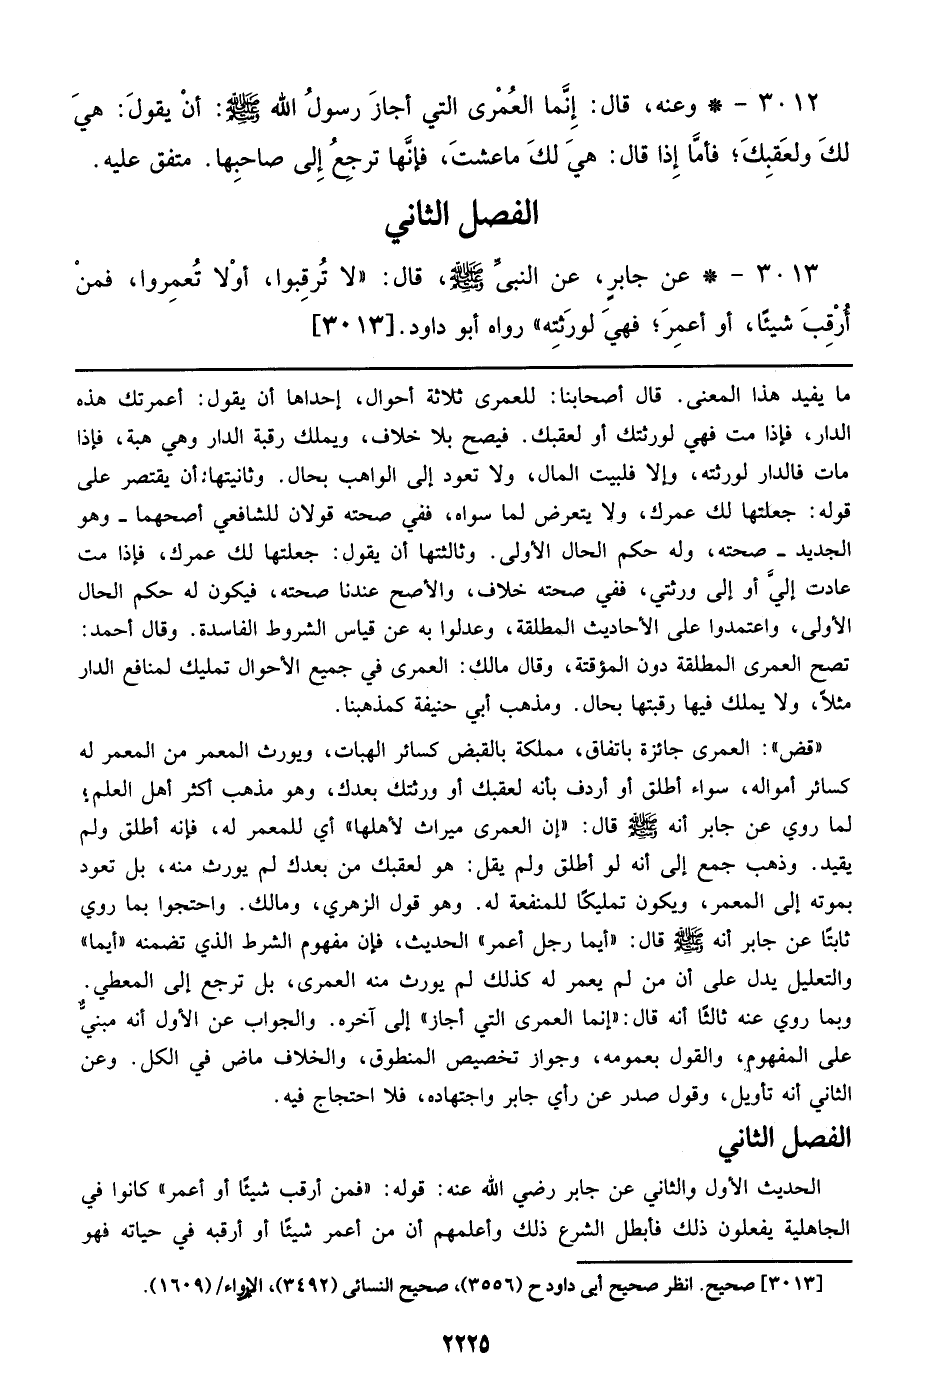 ٣٠١٢ - * وعنه، قال: إِنَّما العُمْرى التي أجازَ رسولُ الله ﷺ: أنْ يقولَ: هيَ
لكَ ولعَقبِكَ؛ فأمَّا إِذا قال: هيَ لكَ ماعشتَ، فإنَّها ترجعُ إِلى صاحبِها. متفق عليه.
الفصل الثاني
٣٠١٣ - * عن جابرٍ، عن النبيِّ ﷺ، قال: «لا تُرقِبوا، أوْلا تُعمِروا، فمنْ
أُرْقِبَ شيئًا، أو أعمِرَ؛ فهيَ لورَثتِه» رواه أبو داود.[٣٠١٣]
ما يفيد هذا المعنى. قال أصحابنا: للعمرى ثلاثة أحوال، إحداها أن يقول: أعمرتك هذه
الدار، فإذا مت فهي لورثتك أو لعقبك. فيصح بلا خلاف، ويملك رقبة الدار وهي هبة، فإذا
مات فالدار لورثته، وإلا فلبيت المال، ولا تعود إلى الواهب بحال. وثانيتها:أن يقتصر على
قوله: جعلتها لك عمرك، ولا يتعرض لما سواه، ففي صحته قولان للشافعي أصحهما ـ وهو
الجديد ـ صحته، وله حكم الحال الأولى. وثالثتها أن يقول: جعلتها لك عمرك، فإذا مت
عادت إليَّ أو إلى ورثتي، ففي صحته خلاف، والأصح عندنا صحته، فيكون له حكم الحال
الأولى، واعتمدوا على الأحاديث المطلقة، وعدلوا به عن قياس الشروط الفاسدة. وقال أحمد:
تصح العمرى المطلقة دون المؤقتة، وقال مالك: العمرى في جميع الأحوال تمليك لمنافع الدار
مثلاً، ولا يملك فيها رقبتها بحال. ومذهب أبي حنيفة كمذهبنا.
«قض»: العمرى جائزة باتفاق، مملكة بالقبض كسائر الهبات، ويورث المعمر من المعمر له
كسائر أمواله، سواء أطلق أو أردف بأنه لعقبك أو ورثتك بعدك، وهو مذهب أكثر أهل العلم؛
لما روي عن جابر أنه ﷺ قال: «إن العمرى ميراث لأهلها» أي للمعمر له، فإنه أطلق ولم
يقيد. وذهب جمع إلى أنه لو أطلق ولم يقل: هو لعقبك من بعدك لم يورث منه، بل تعود
بموته إلى المعمر، ويكون تمليكًا للمنفعة له. وهو قول الزهري، ومالك. واحتجوا بما روي
ثابتًا عن جابر أنه ﷺ قال: «أيما رجل أعمر» الحديث، فإن مفهوم الشرط الذي تضمنه «أيما»
والتعليل يدل على أن من لم يعمر له كذلك لم يورث منه العمرى، بل ترجع إلى المعطي.
وبما روي عنه ثالثًا أنه قال:«إنما العمرى التي أجاز» إلى آخره. والجواب عن الأول أنه مبنيٌّ
على المفهوم، والقول بعمومه، وجواز تخصيص المنطوق، والخلاف ماض في الكل. وعن
الثاني أنه تأويل، وقول صدر عن رأي جابر واجتهاده، فلا احتجاج فيه.
الفصل الثاني
الحديث الأول والثاني عن جابر رضي الله عنه: قوله: «فمن أرقب شيئًا أو أعمر» كانوا في
الجاهلية يفعلون ذلك فأبطل الشرع ذلك وأعلمهم أن من أعمر شيئًا أو أرقبه في حياته فهو
[٣٠١٣] صحيح. انظر صحيح أبى داود ح (٣٥٥٦)، صحيح النسائى (٣٤٩٢)، الإرواء/ (١٦٠٩).
٢٢٢٥